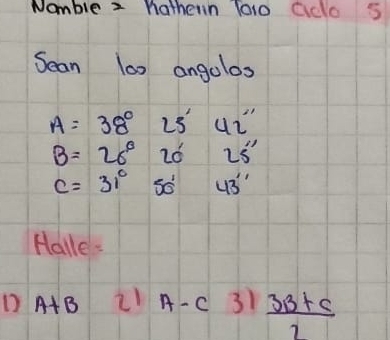 Nombre = Katherin Toro Ciclo 5
Sean los angulos
A = 38° 25' 42''
B = 26° 20' 25''
C = 31° 50' 43''
Halle =
1) A+B 2) A-C 3) \frac{3B+C}{2}